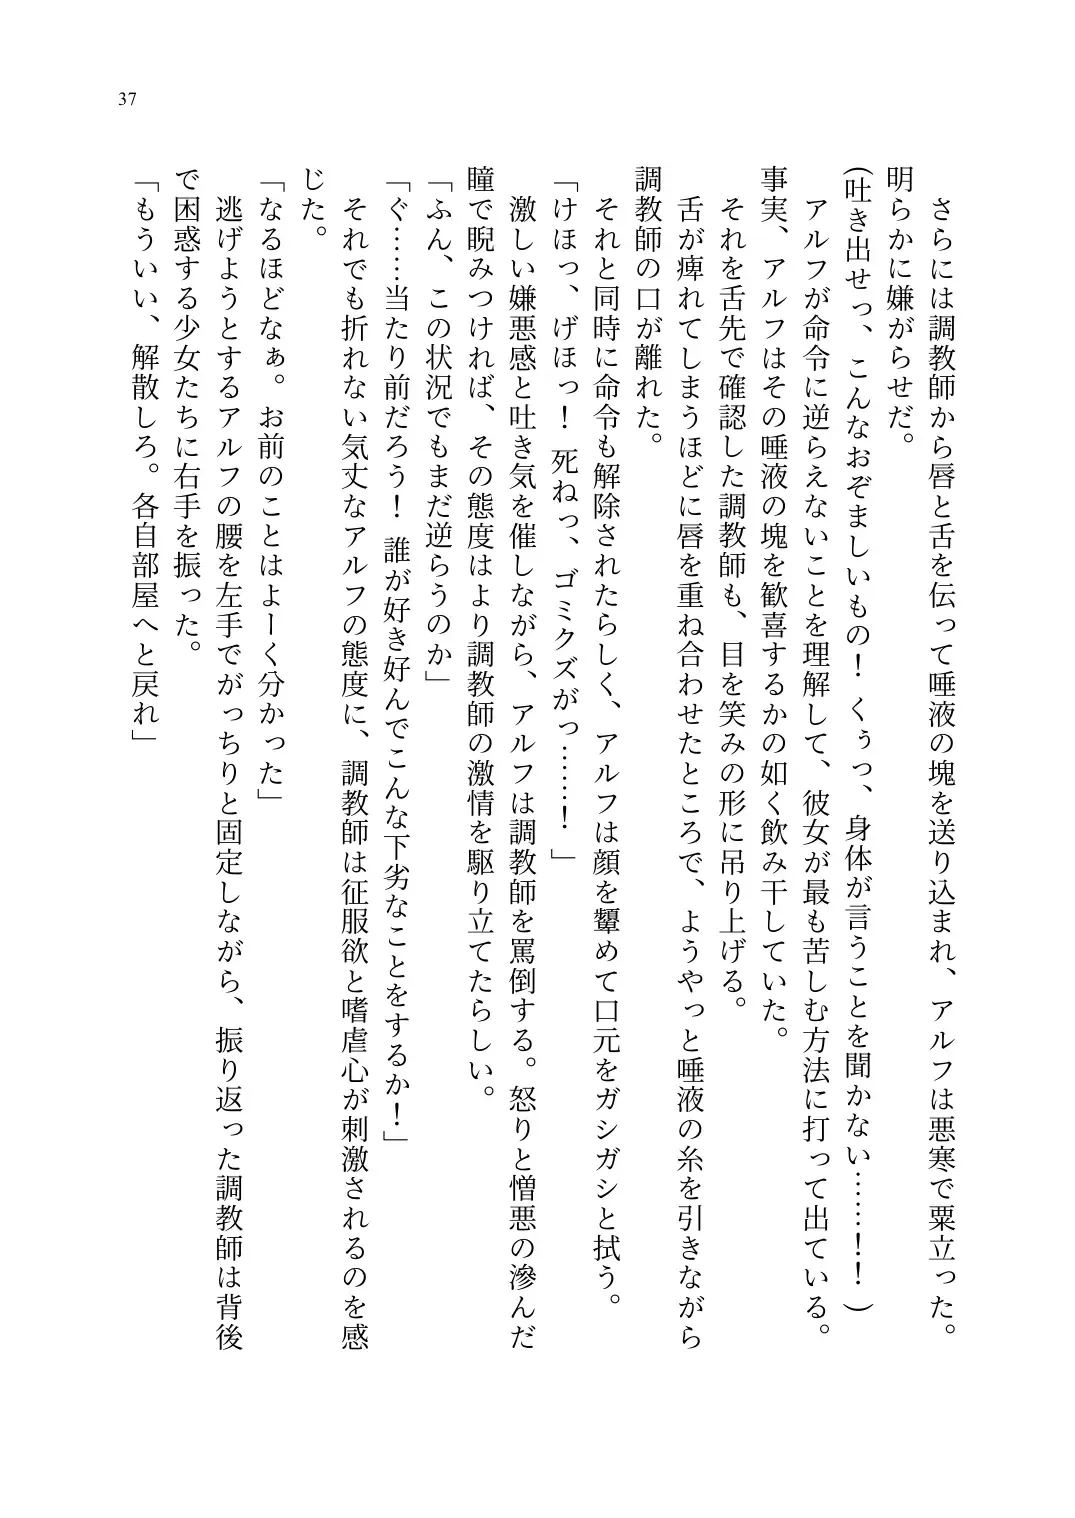 37
　さらには調教師から唇と舌を伝って唾液の塊を送り込まれ、アルフは悪寒で粟立った。
明らかに嫌がらせだ。
（吐き出せっ、こんなおぞましいもの！ くぅっ、身体が言うことを聞かない……！！）
　アルフが命令に逆らえないことを理解して、彼女が最も苦しむ方法に打って出ている。
事実、アルフはその唾液の塊を歓喜するかの如く飲み干していた。
　それを舌先で確認した調教師も、目を笑みの形に吊り上げる。
　舌が痺れてしまうほどに唇を重ね合わせたところで、ようやっと唾液の糸を引きながら
調教師の口が離れた。
　それと同時に命令も解除されたらしく、アルフは顔を顰めて口元をガシガシと拭う。
「けほっ、げほっ！ 死ねっ、ゴミクズがっ……！」
　激しい嫌悪感と吐き気を催しながら、アルフは調教師を罵倒する。怒りと憎悪の滲んだ
瞳で睨みつければ、その態度はより調教師の激情を駆り立てたらしい。
「ふん、この状況でもまだ逆らうのか」
「ぐ……当たり前だろう！ 誰が好き好んでこんな下劣なことをするか！」
　それでも折れない気丈なアルフの態度に、調教師は征服欲と嗜虐心が刺激されるのを感
じた。
「なるほどなぁ。お前のことはよーく分かった」
　逃げようとするアルフの腰を左手でがっちりと固定しながら、振り返った調教師は背後
で困惑する少女たちに右手を振った。
「もういい、解散しろ。各自部屋へと戻れ」